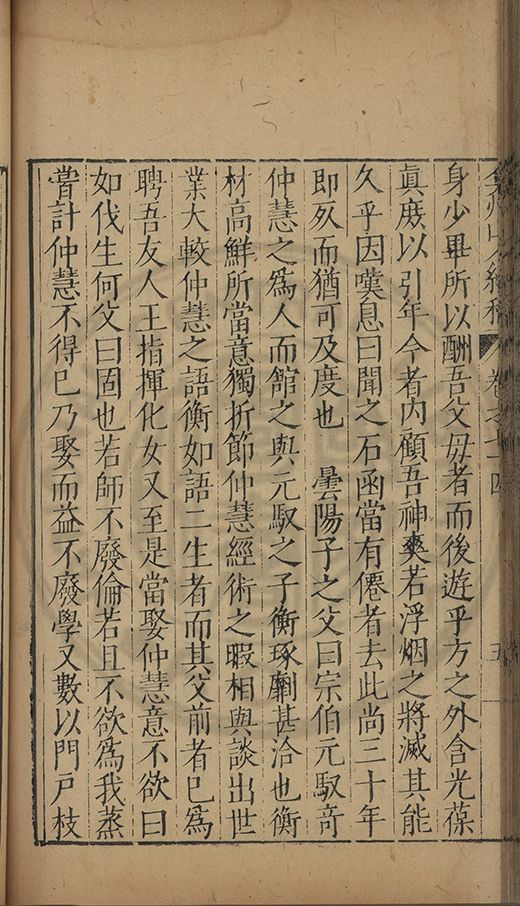 身少畢所以酬吾父毋者而後遊乎方之外含光葆
眞庻以引年今者内顧吾神爽若浮烟之將滅其能
久乎因嘆息曰聞之石函當有僊者去此尚三十年
即死而猶可及度也　曇陽子之父曰宗伯元馭竒
仲慧之爲人而舘之與元馭之子衡琢劘甚洽也衡
材高鮮所當意獨折節仲慧經術之暇相與談出世
業大較仲慧之語衡如語二生者而其父前者已爲
聘吾友人王指揮化女又至是當娶仲慧意不欲曰
如伐生何父曰固也若師不廢倫若且不欲爲我蒸
嘗計仲慧不得已乃娶而益不廢學又數以門戸枝